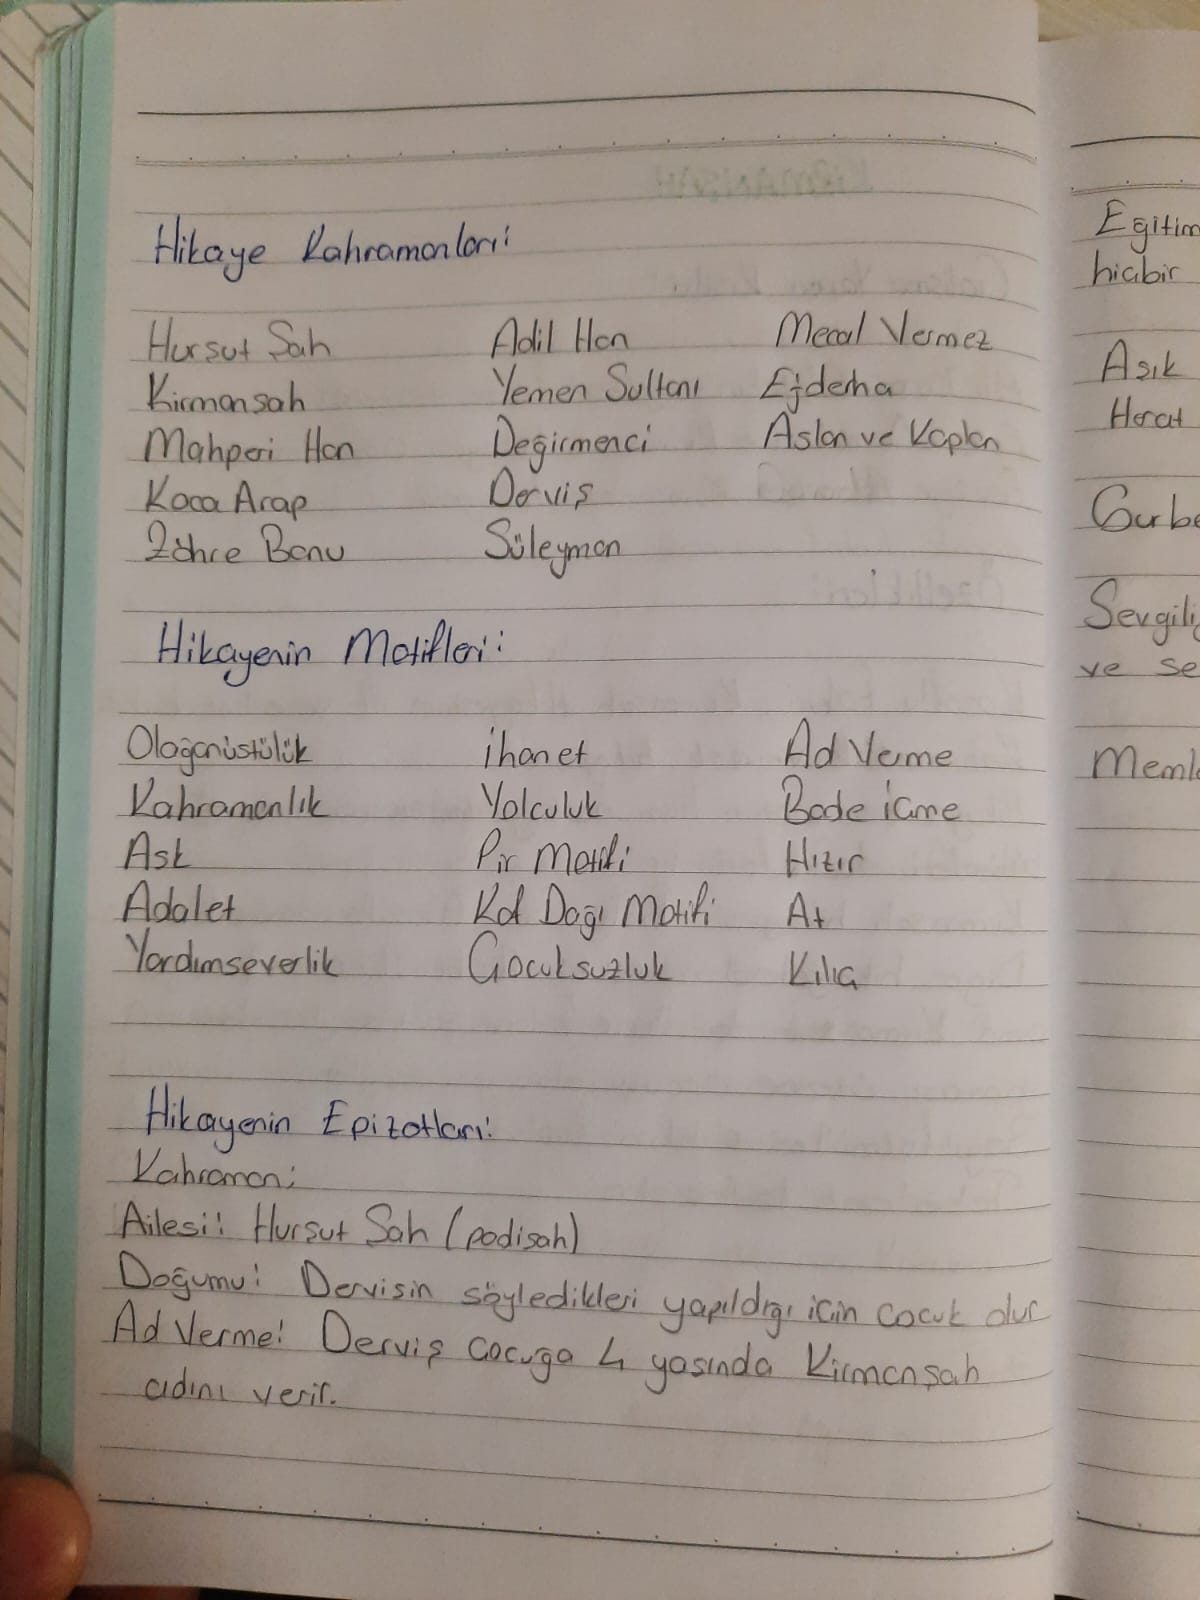 Hikaye Kahramanları:
Hurşut Şah Adil Han Mecal Vermez
Kirmanşah Yemen Sultanı Ejderha
Mahperi Han Değirmenci Aslan ve Kaplan
Koca Arap Derviş
Zöhre Banu Süleyman
Hikayenin Motifleri:
Olağanüstülük İhanet Ad Verme
Kahramanlık Yolculuk Bade içme
Aşk Pir Motifi Hızır
Adalet Kaf Dağı Motifi At
Yardımseverlik Çocuksuzluk Kılıç
Hikayenin Epizotları:
Kahraman:
Ailesi: Hurşut Şah (padişah)
Doğumu: Dervişin söyledikleri yapıldığı için çocuk olur
Ad Verme: Derviş çocuğa 4 yaşında Kirmanşah
adını verir.
Eğitim
hiçbir
Aşık
Herat
Gurbe
Sevgili
ve se
Memle